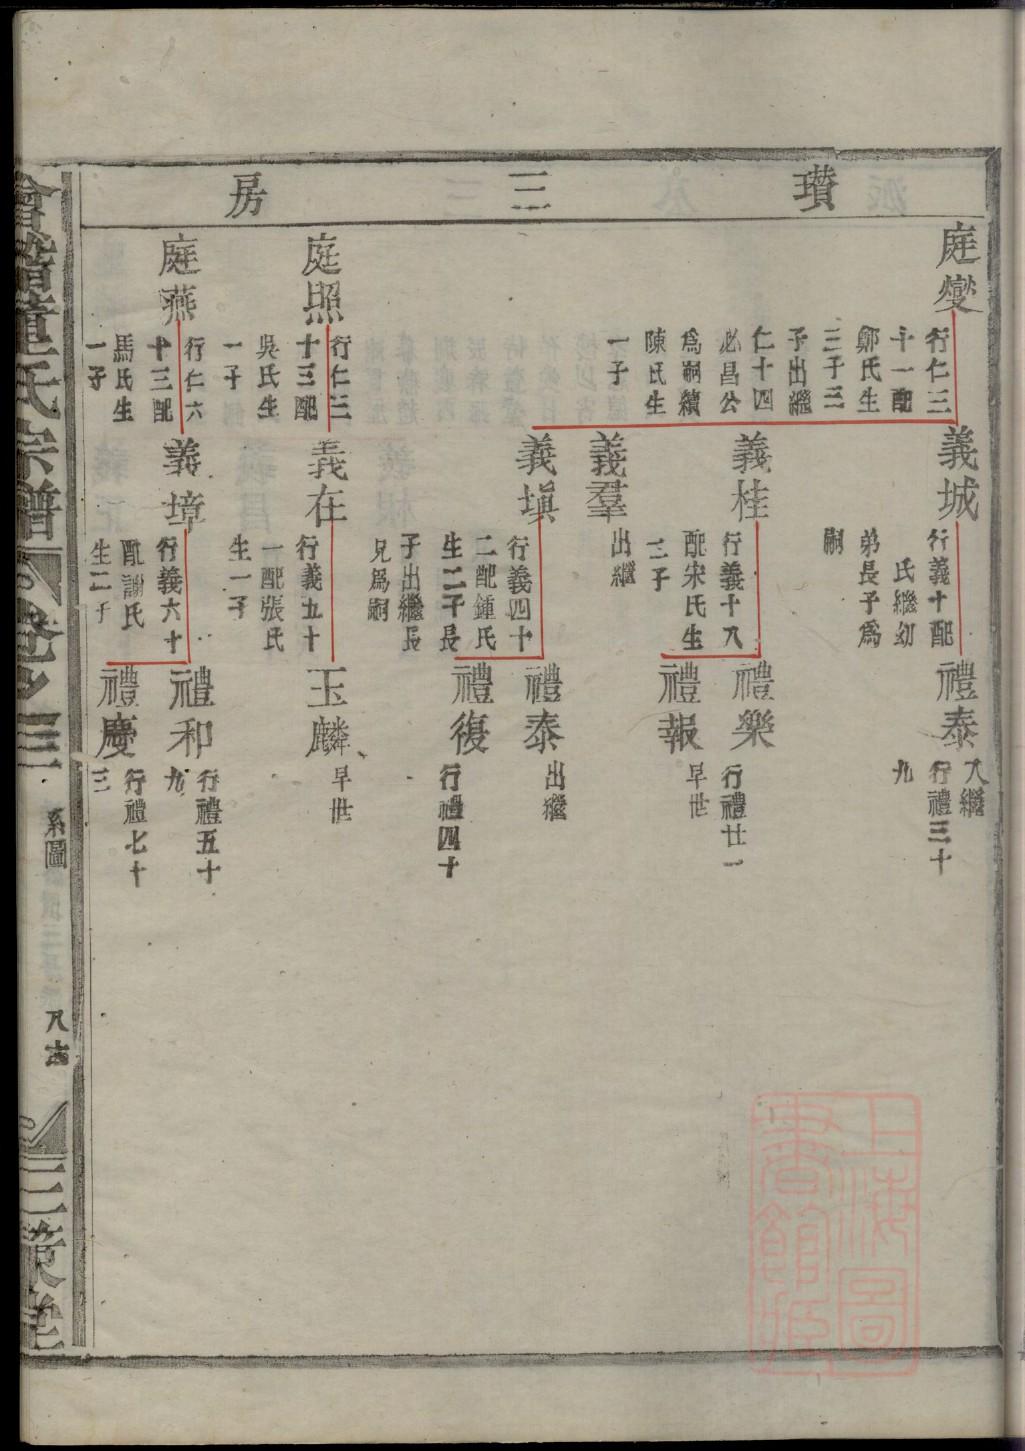 瓚三房
庭燮
行仁三
十一配
鄭氏生
三子三
子出繼
仁十四
必昌公
為嗣續
陳氏生
一子
庭照
行仁三
十三配
吳氏生
一子
庭燕
行仁六
十三配
馬氏生
一子
義城
行義十配
氏繼幼
弟長子為
嗣
義桂
行義十八
配宋氏生
二子
義羣
出繼
義塡
行義四十
二配鍾氏
生二子長
子出繼長
兄為嗣
義在
行義五十
一配張氏
生一子
義墇
行義六十
配謝氏
生二子
禮泰
入繼
行禮三十
九
禮樂
行禮廿一
禮報
早世
禮泰
出繼
禮復
行禮四十
玉麟
早世
禮和
行禮五十
九
禮慶
行禮七十
三
會稽董氏宗譜
卷之三
系圖
三策堂
上海圖
書館藏